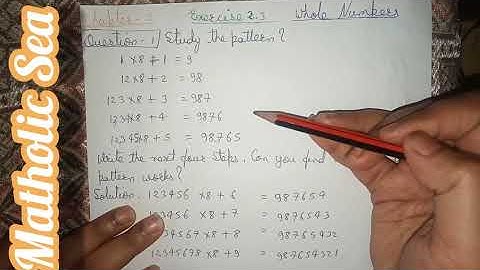 Chapter- Exercise 2.3 Whole Numbers
Question-1) Study the pattern?
1×8+1 = 9
12×8+2 = 98
123×8+3 = 987
1234×8+4 = 9876
12345×8+5 = 98765
Write the next four steps. Can you find
pattern works?
Solution. 123456 ×8+6 = 987654
123456 ×8+7 = 9876543
234567 ×8+8 = 98765432
12345678 ×8+9 = 987654321
Matholic Sea